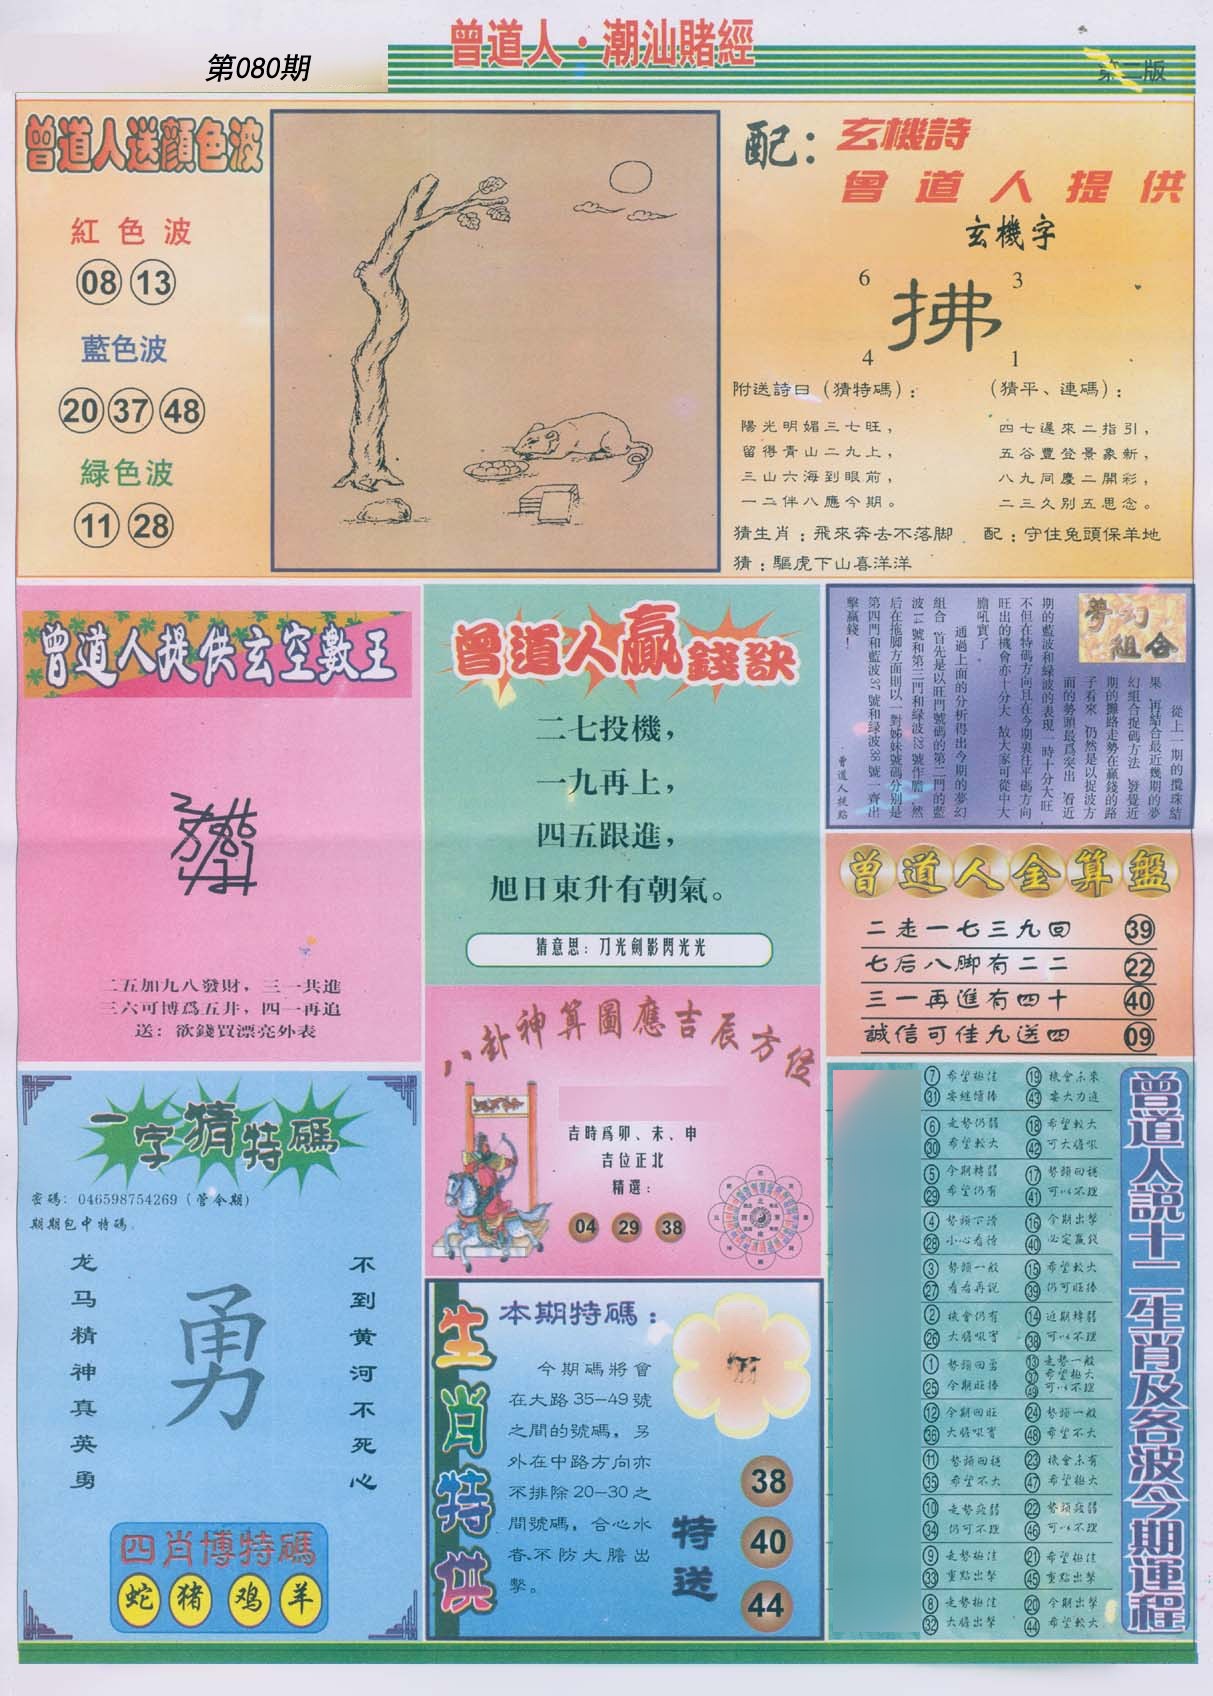 曾道人·潮汕賭經
第080期
第二版
曾道人送顔色波
紅色波
08 13
藍色波
20 37 48
緑色波
11 28
配：玄機詩
曾道人提供
玄機字
6 3
拂
4 1
附送詩曰（猜特碼）：
陽光明媚三七旺，
留得青山二九上，
三山六海到眼前，
一二伴八應今期。
（猜平、連碼）：
四七遲來二指引，
五谷豐登景象新，
八九同慶二開彩，
二三久别五思念。
猜生肖：飛來奔去不落脚 配：守住兔頭保羊地
猜：驅虎下山喜洋洋
曾道人提供玄空數王
二五加九八發財，三一共進
三六可博爲五井，四一再追
送：欲錢買漂亮外表
曾道人贏錢訣
二七投機，
一九再上，
四五跟進，
旭日東升有朝氣。
猜意思：刀光劍影閃光光
夢幻組合
從上一期的攪珠結
果，再結合最近幾期的夢
幻組合捉碼方法，發覺近
期的攤路走勢在贏錢的路
子看來，仍然是以捉波方
面的勢頭最爲突出，看近
期的藍波和緑波的表現一時十分大旺，
不但在特碼方向且在今期裏往平碼方向
旺出的機會亦十分大，故大家可從中大
膽吼實了。
通過上面的分析得出今期的夢幻
組合，首先是以旺門號碼的第二門的藍
波14號和第三門和緑波22號作膽，然
后在拖脚方面則以一對姊妹號碼分别是
第四門和藍波37號和緑波38號一齊出
擊贏錢！
·曾道人提點
曾道人金算盤
二走一七三九回 39
七后八脚有二二 22
三一再進有四十 40
誠信可佳九送四 09
八卦神算圖應吉辰方位
吉時爲卯、未、申
吉位正北
精選：
04 29 38
一字猜特碼
密碼：046598754269（管今期）
期期包中特碼.
龙马精神真英勇
勇
不到黄河不死心
四肖博特碼
蛇 猪 鸡 羊
生肖特供
本期特碼：
今期碼將會
在大路35—49號
之間的號碼，另
外在中路方向亦
不排除20—30之
間號碼，合心水
者、不防大膽出
擊。
特送
38
40
44
曾道人説十二生肖及各波今期運程
7 希望極佳 19 機會未來
31 要繼續捧 43 要大力追
6 走勢仍弱 18 希望較大
30 希望較大 42 可大膽吼
5 今期轉弱 17 勢頭回穩
29 希望仍有 41 可以不理
4 勢頭下滑 16 今期出擊
28 小心看待 40 必定贏錢
3 勢頭一般 15 希望較大
27 看看再説 39 仍可旺捧
2 機會仍有 14 近期轉弱
26 大膽吼實 38 可以不理
1 勢頭回勇 13 走勢一般
25 今期旺捧 37 希望極大
49 可以不理
12 今期回旺 24 勢頭一般
36 大膽吼實 48 希望不大
11 勢頭回穩 23 機會未有
35 希望不大 47 希望極大
10 走勢疲弱 22 勢頭疲弱
34 仍可不理 46 可以不理
9 走勢極佳 21 希望極佳
33 重點出擊 45 重點出擊
8 走勢極佳 20 今期出擊
32 大膽出擊 44 希望較大